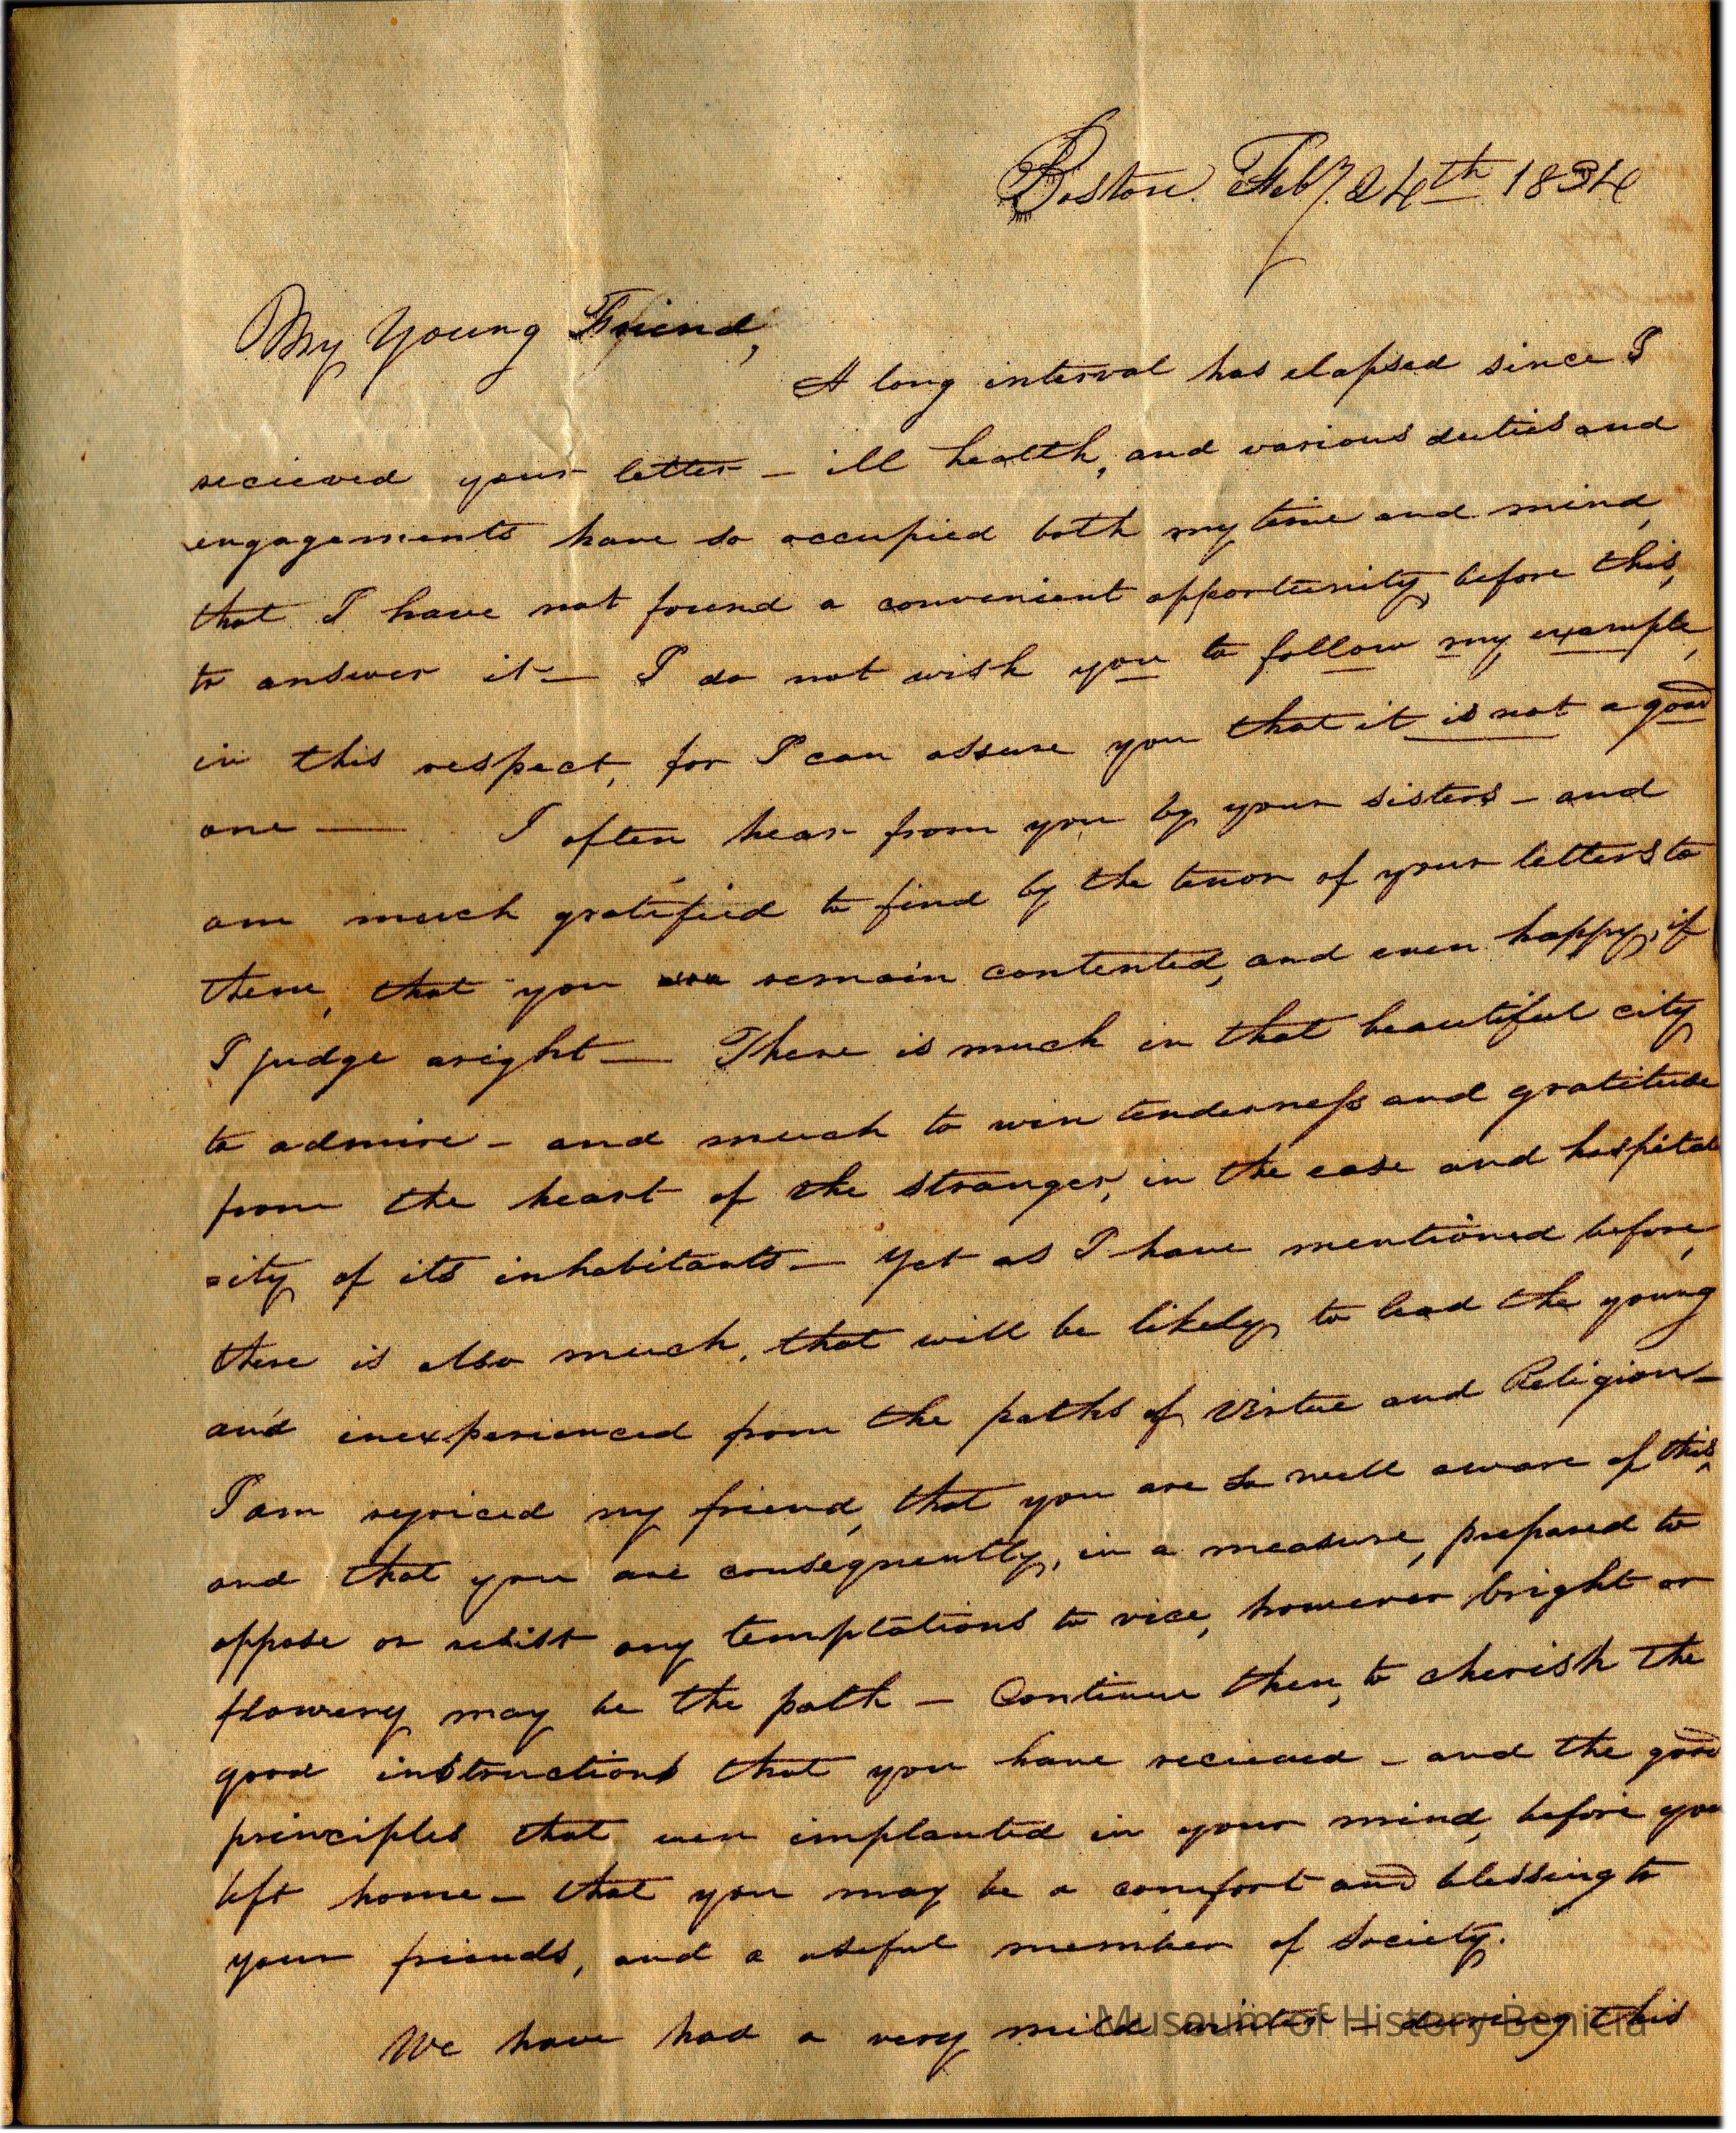 Boston Feby. 24th 1834
My Young Friend,
A long interval has elapsed since I
recieved your letter – ill health, and various duties and
engagements have so occupied both my time and mind,
that I have not found a convenient opportunity before this,
to answer it — I do not wish you to follow my example,
in this respect, for I can assure you that it is not a good
one — I often hear from you by your sisters – and
am much gratified to find by the tenor of your letters to
them, that you remain contented, and even happy, if
I judge aright — There is much in that beautiful city
to admire – and much to win tenderness and gratitude
from the heart of the stranger, in the ease and hospital
=ity of its inhabitants – Yet as I have mentioned before,
there is also much, that will be likely to lead the young
and inexperienced from the paths of Virtue and Religion –
I am rejoiced my friend, that you are so well aware of this,
and that you are consequently, in a measure, prepared to
oppose or resist any temptations to vice, however bright or
flowery may be the path – Continue then, to cherish the
good instructions that you have recieved – and the good
principles that were implanted in your mind, before you
left home – that you may be a comfort and blessing to
your friends, and a useful member of society.
We have had a very mild winter – during this
Museum of History Benicia